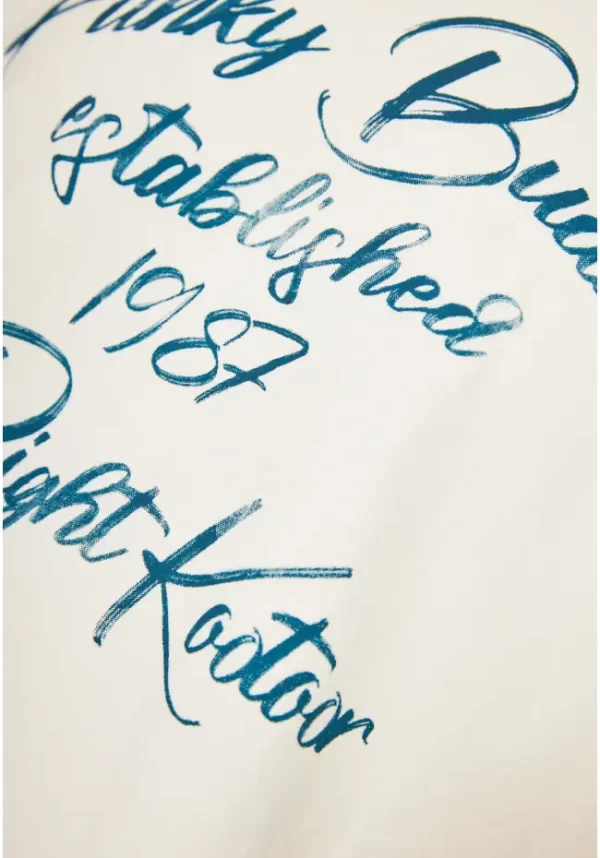 Funky Bud
established
1987
Right Kootoor